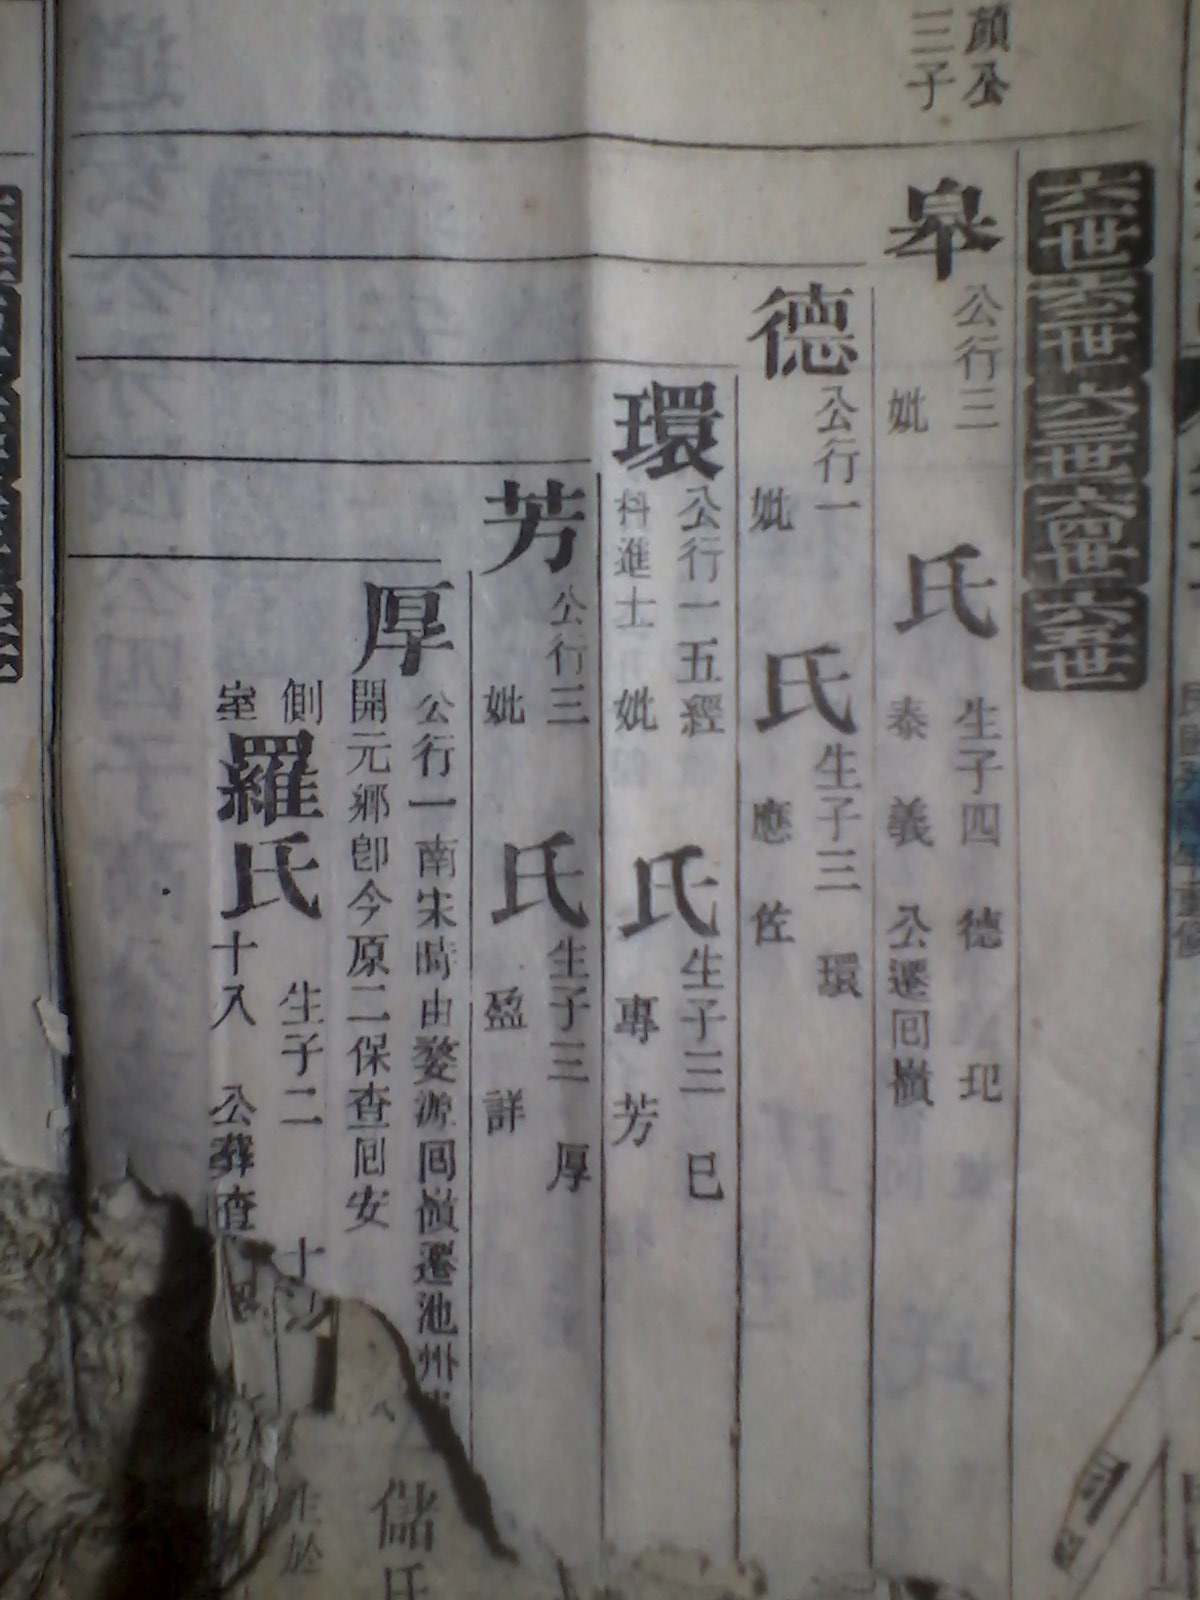 顔公
三子
六世
六二世
六三世
六四世
六五世
皋
公行三
妣
氏
生子四 德 玘
泰 義 公遷回嶺
德
公行一
妣
氏
生子三 環
應 佐
環
公行一五經
科進士 妣
氏
生子三 巳
專 芳
芳
公行三
妣
氏
生子三 厚
盈 詳
厚
公行一南宋時由婺源回嶺遷池州
開元鄉卽今原二保查回安
側
室
羅氏
生子二 十
十入 公葬查
儲氏
生於